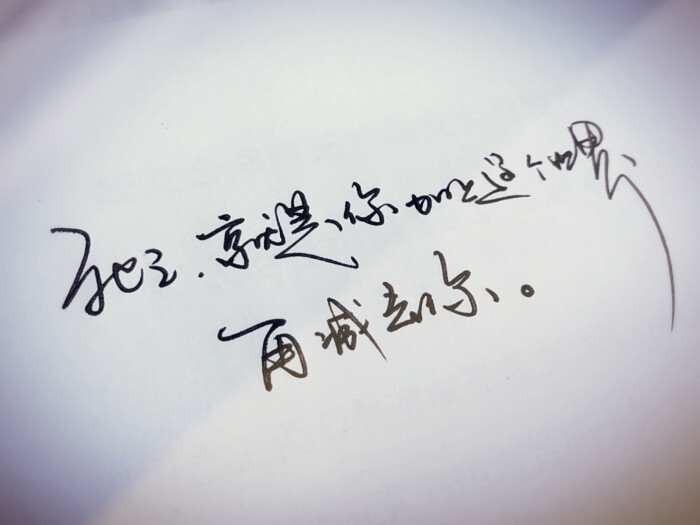 死亡，就是你加上这个世界、
再减去你。